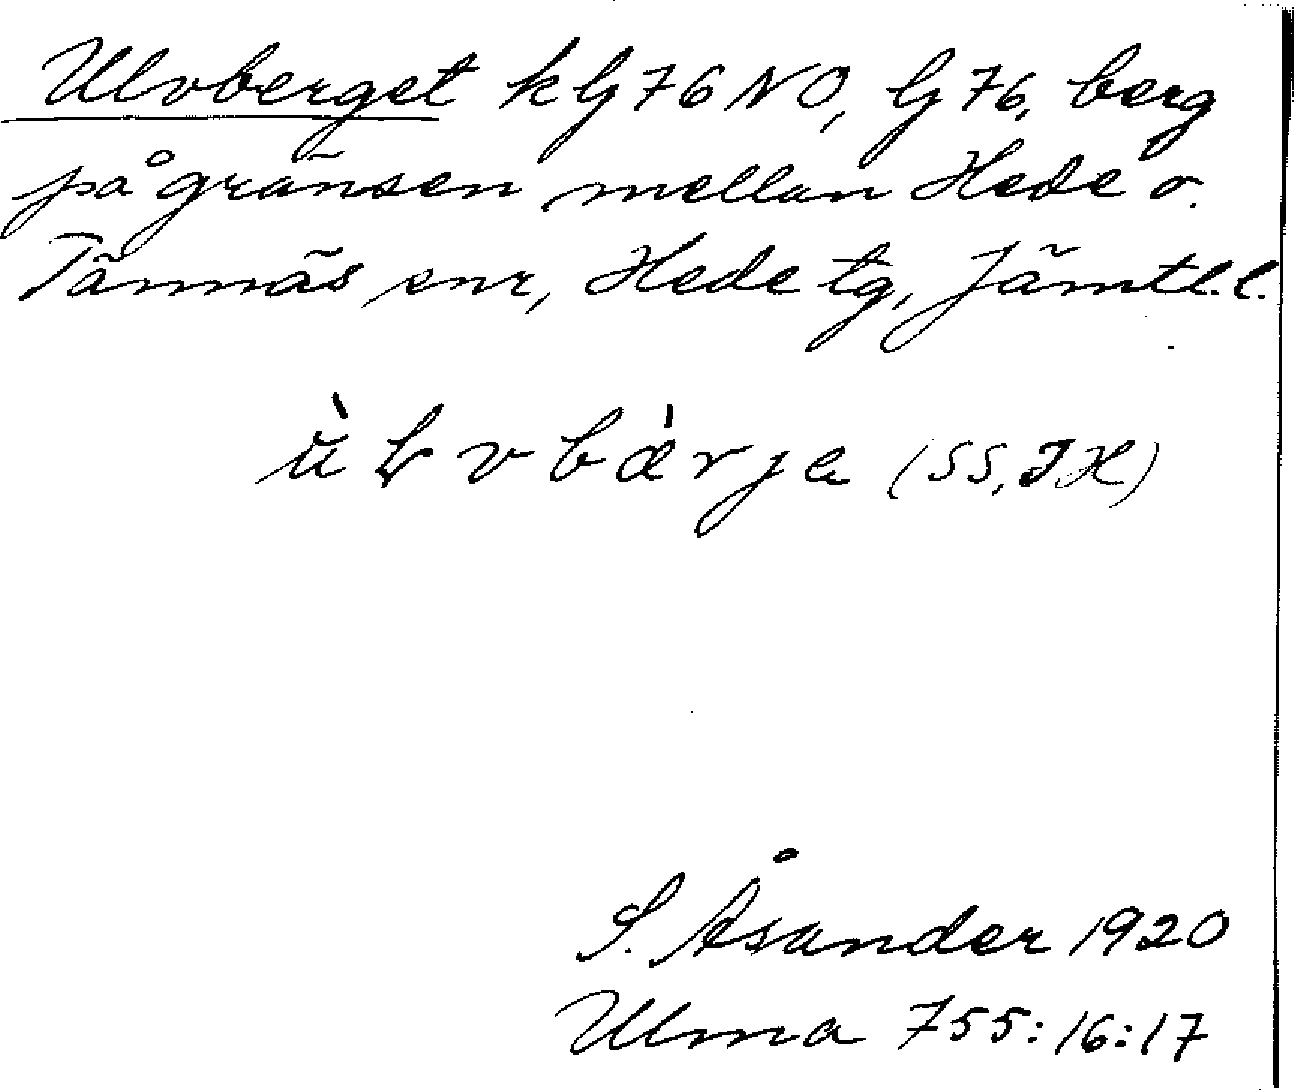 Ulvberget kG76NO, G76, berg
på gränsen mellan Hede o.
Tännäs snr, Hede tg, Jämtl.l.
ùḷvbær̀ja (SS, JH)
S. Åsander 1920
Ulma 755:16:17